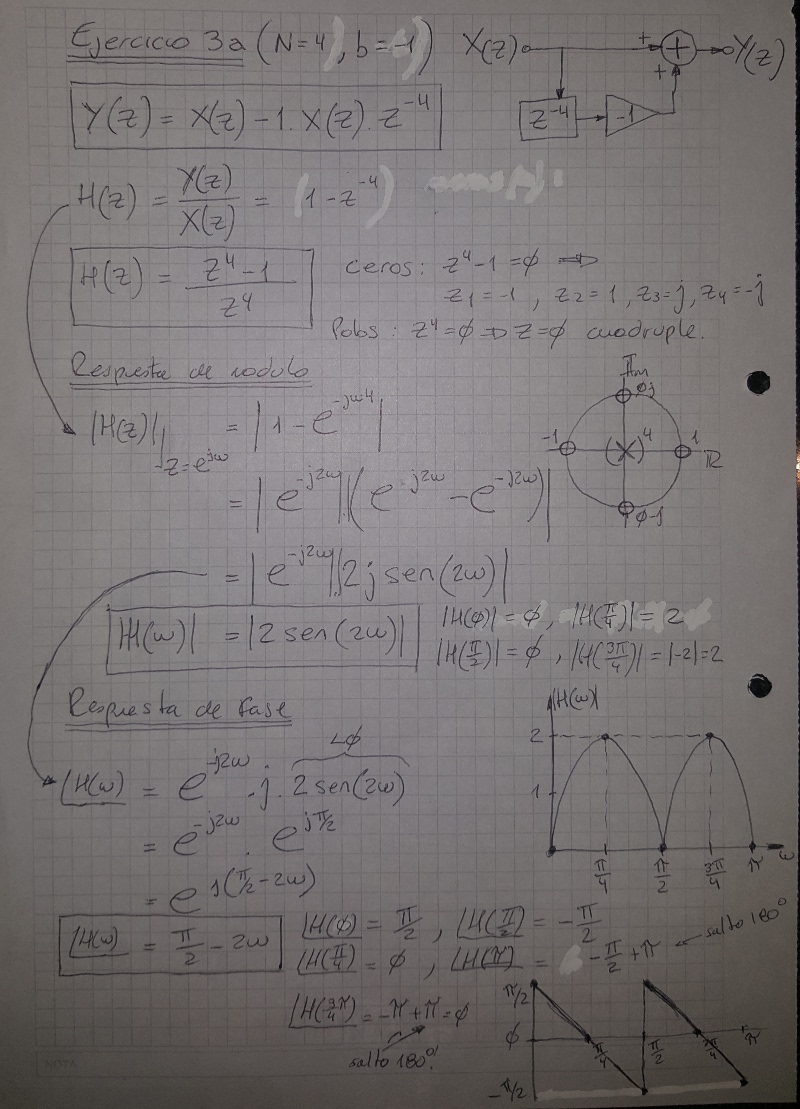 Ejercicio 3a (N=4, b=-1)
X(z) + + Y(z)
+
z⁻⁴ -1
Y(z) = X(z) - 1 . X(z) . z⁻⁴
H(z) = Y(z)/X(z) = (1 - z⁻⁴)
H(z) = (z⁴-1)/z⁴
Ceros: z⁴-1=ϕ ⇒
z₁=-1, z₂=1, z₃=j, z₄=-j
Polos: z⁴=ϕ ⇒ z=ϕ cuadruple.
Respuesta de modulo
Im
j
-1 (X)⁴ 1 R
-j
|H(z)| |z=e^jω = |1 - e^-jω4|
= |e^-j2ω|.|(e^j2ω - e^-j2ω)|
= |e^-j2ω||2j sen(2ω)|
|H(ω)| = |2 sen(2ω)|
|H(ϕ)|=ϕ, |H(π/4)|=|2
|H(π/2)|=ϕ, |H(3π/4)|=|-2|=2
Respuesta de fase
∠ϕ
∠H(ω) = e^-j2ω . j . 2 sen(2ω)
= e^-j2ω . e^jπ/2
= e^j(π/2 - 2ω)
∠H(ω) = π/2 - 2ω
|H(ω)|
2
1
π/4 π/2 3π/4 π ω
∠H(ϕ) = π/2, ∠H(π/2) = -π/2
∠H(π/4) = ϕ, ∠H(π) = -π/2+π ← salto 180°
∠H(3π/4) = -π+π=ϕ
salto 180°!
π/2
ϕ π/4 π/2 3π/4 π
-π/2